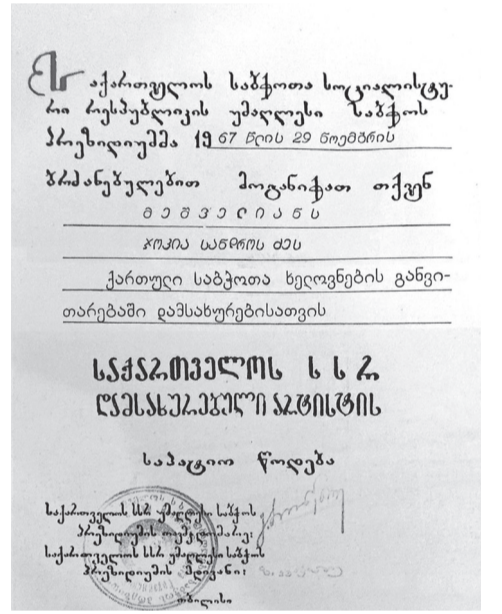 საქართველოს საბჭოთა სოციალისტუ-
რი რესპუბლიკის უმაღლესი საბჭოს
პრეზიდიუმმა 1967 წლის 29 ნოემბრის
ბრძანებულებით მოგანიჭათ თქვენ
მეშველიანს
ჯოკია სანდროს ძეს
ქართული საბჭოთა ხელოვნების განვი-
თარებაში დამსახურებისათვის
საქართველოს სსრ
დამსახურებული არტისტის
საპატიო წოდება
საქართველოს სსრ უმაღლესი საბჭოს
პრეზიდიუმის თავმჯდომარე:
საქართველოს სსრ უმაღლესი საბჭოს
პრეზიდიუმის მდივანი:
თბილისი